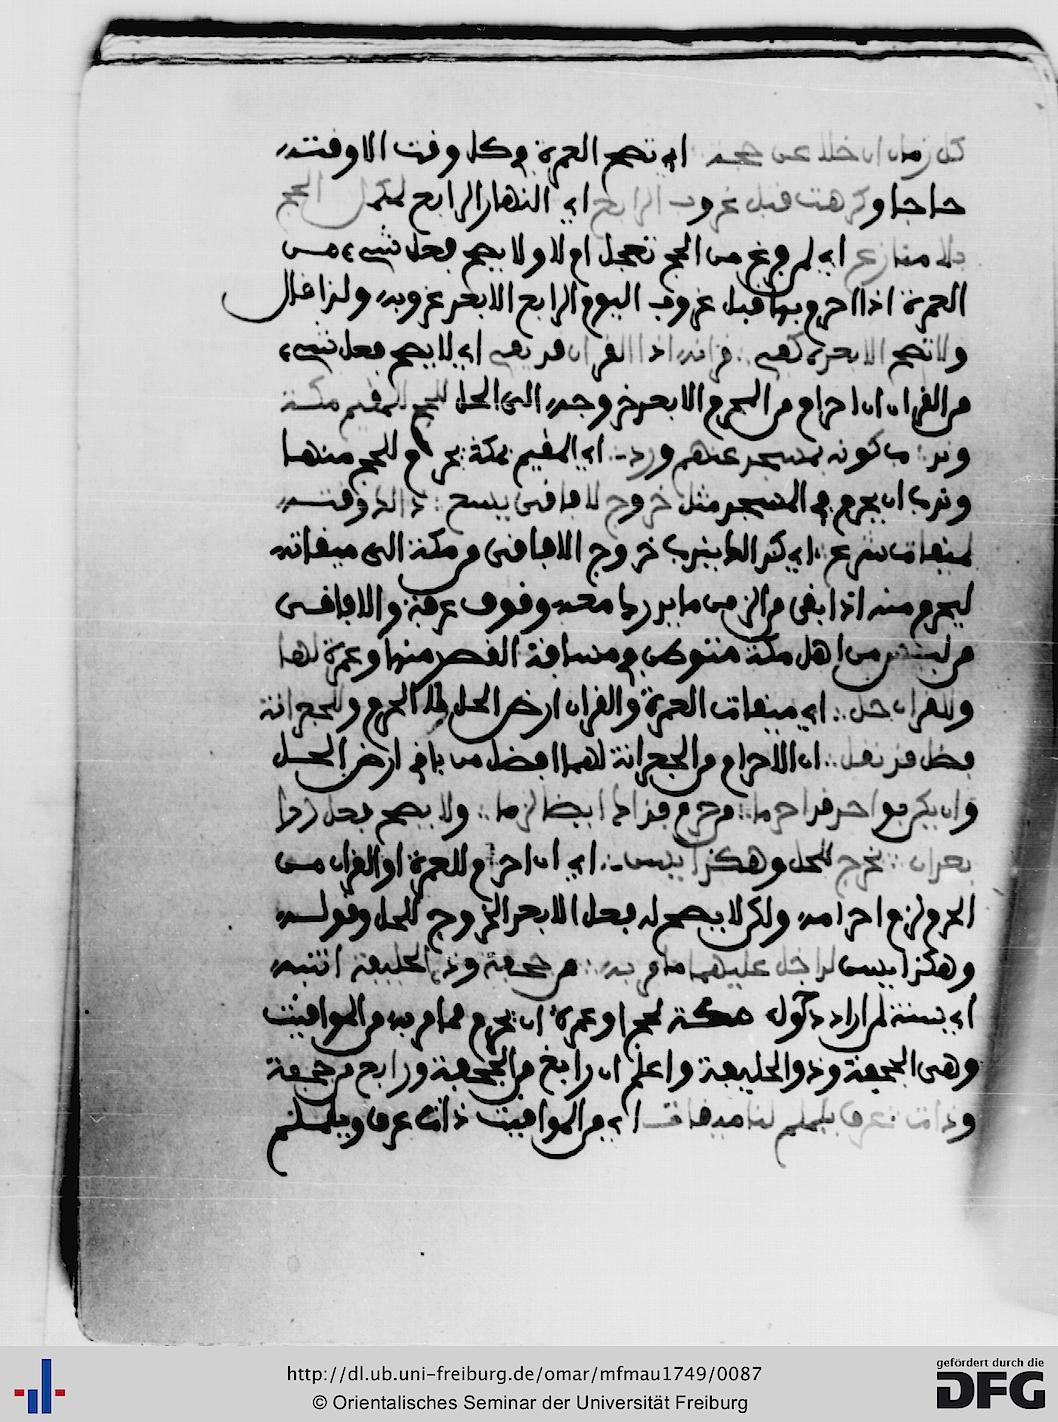 كل زمان ان خلا عن حجه اي تصح العمرة في كل وقت الا وقته
حاجا وكرهت قبل غروب الرابع اي النهار الرابع لمكمل الحج
بلا منازع اي لمن فرغ من الحج تعجل ام لا ولا يصح فعل شيء من
العمرة اذا احرم بها قبل غروب اليوم الرابع الا بعد غروبه ولذا قال
ولا تصح الا بعده اي لا يصح فعل شيء
من القران ان احرام من الحرم الا بعد خروجه الى الحل للحج للمقيم مكة
وندب كونه بمسجد عنهم ورد اي المقيم بمكة يحرم للحج منها
وندب ان يحرم في المسجد مثل خروج لافاقي ذا وقت
لميقات شرع اي كذلك يندب خروج الافاقي من مكة الى ميقاته
ليحرم منه اذا بقي من الزمن ما يدرك معه وقوف عرفة والافاقي
من ليس من اهل مكة متوطن في مسافة القصر منها وعمرة لها
وللقران حل اي ميقات العمرة والقران ارض الحل لا الحرم وللجعرانة
فضل قد نقل ان الاحرام من الجعرانة لهما افضل من باقي ارض الحل
وان يكن بواحد قد احرما من حرم فذاك ايضا لزما ولا يصح فعل ذا
يخرج للحل وهكذا اي ان احرم للعمرة او القران من
الحرم لزم احرامه ولكن لا يصح له فعل الا بعد الخروج للحل وقوله
وهكذا عليهما من جحفة وذي الحليفة انتبه
اي لمن اراد دخول مكة لحج او عمرة ان يحرم مما مر به من المواقيت
وهي الجحفة وذو الحليفة واعلم ان رابغ من الجحفة ورابغ من جحفة
وذات عرق يلملم لنا ميقات اي من المواقيت ذات عرق ويلملم
http://dl.ub.uni-freiburg.de/omar/mfmau1749/0087
© Orientalisches Seminar der Universität Freiburg
gefördert durch die
DFG